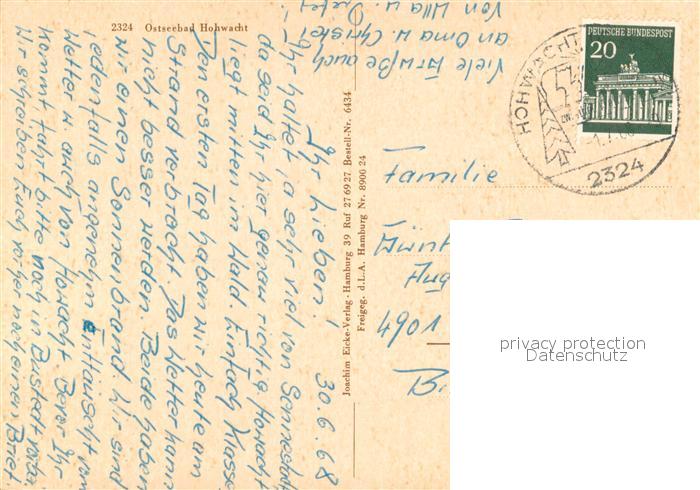 2324 Ostseebad Hohwacht
30.6.68
Ihr Lieben!
Ihr haltet ja sehr viel von Sonne
da seid Ihr hier genau richtig. Howacht
liegt mitten im Wald. Einfach Klasse
Den ersten Tag haben wir heute am
Strand verbracht. Das Wetter kann
nicht besser werden. Beide haben
wir einen Sonnenbrand. Wir sind
jedenfalls angenehm Enttäuscht vom
Wetter u. auch von Howacht. Bevor Ihr
kommt fahrt bitte noch in Bustedt vorbei
Wir schreiben Euch vorher noch einen Brief.
Viele Grüße auch
an Oma u. Christel
von Ulla u. Dieter
Joachim Eicke-Verlag · Hamburg 39 Ruf 27 69 27. Bestell-Nr. 6434
Freigeg. d. L.A. Hamburg Nr. 8900 24
DEUTSCHE BUNDESPOST
20
HOHWACHT
2324
Familie
4901
privacy protection
Datenschutz